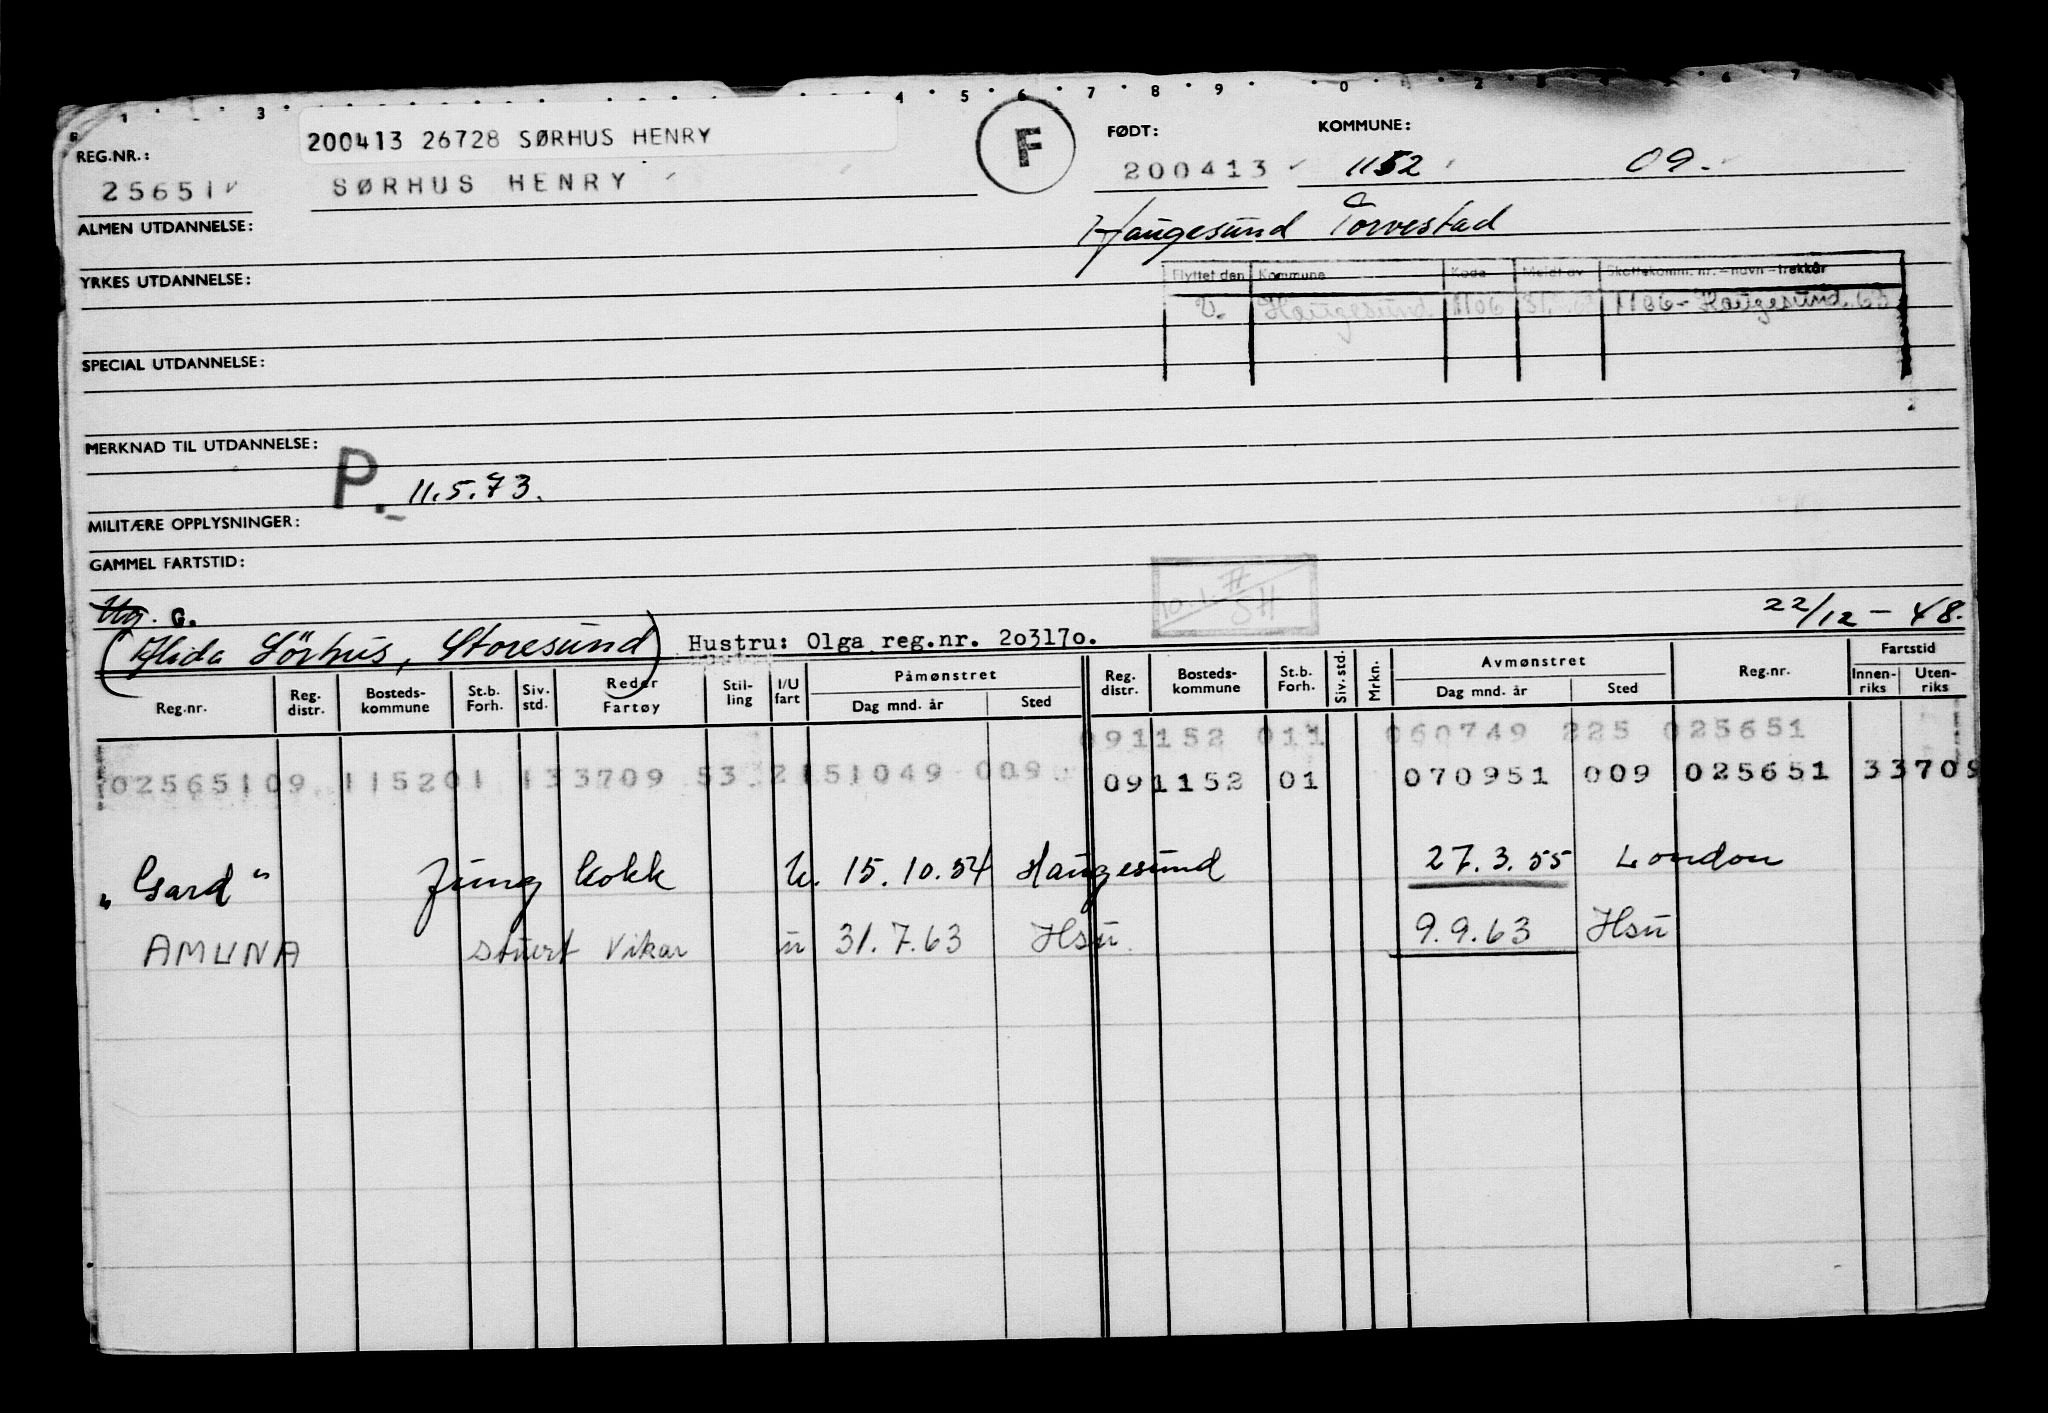 1 3 4 5 6 7 8 9 0 2 3 4 5 6 7
REG.NR.: 200413 26728 SØRHUS HENRY F FØDT: KOMMUNE:
25651 SØRHUS HENRY 200413 1152 09.
ALMEN UTDANNELSE: Haugesund Torvestad
YRKES UTDANNELSE: Flyttet den Kommune Kode Meldt av Skattekomm. nr. - navn - trekkår
U. Haugesund. 1106 31. 1106- Haugesund. 63
SPECIAL UTDANNELSE:
MERKNAD TIL UTDANNELSE:
P. 11.5.73.
MILITÆRE OPPLYSNINGER:
GAMMEL FARTSTID:
Ug. G. 22/12 - 48.
(Alida Sörhus, Storesund) Hustru: Olga reg.nr. 203170.
Reg.nr. Reg. distr. Bosteds-kommune St.b. Forh. Siv. std. Reder Fartøy Stil-ling I/U fart Påmønstret Dag mnd. år Sted Reg. distr. Bosteds-kommune St.b. Forh. Siv. std. Mrkn. Avmønstret Dag mnd. år Sted Reg.nr. Fartstid Innen-riks Uten-riks
091152 011 060749 225 025651
02565109 115201 133709 53 2151049 009 091152 01 070951 009 025651 33709
„Gard" Jung kokk U. 15.10.54 Haugesund 27.3.55 London
AMUNA Stuert Vikar u 31.7.63 Hsu. 9.9.63 Hsu